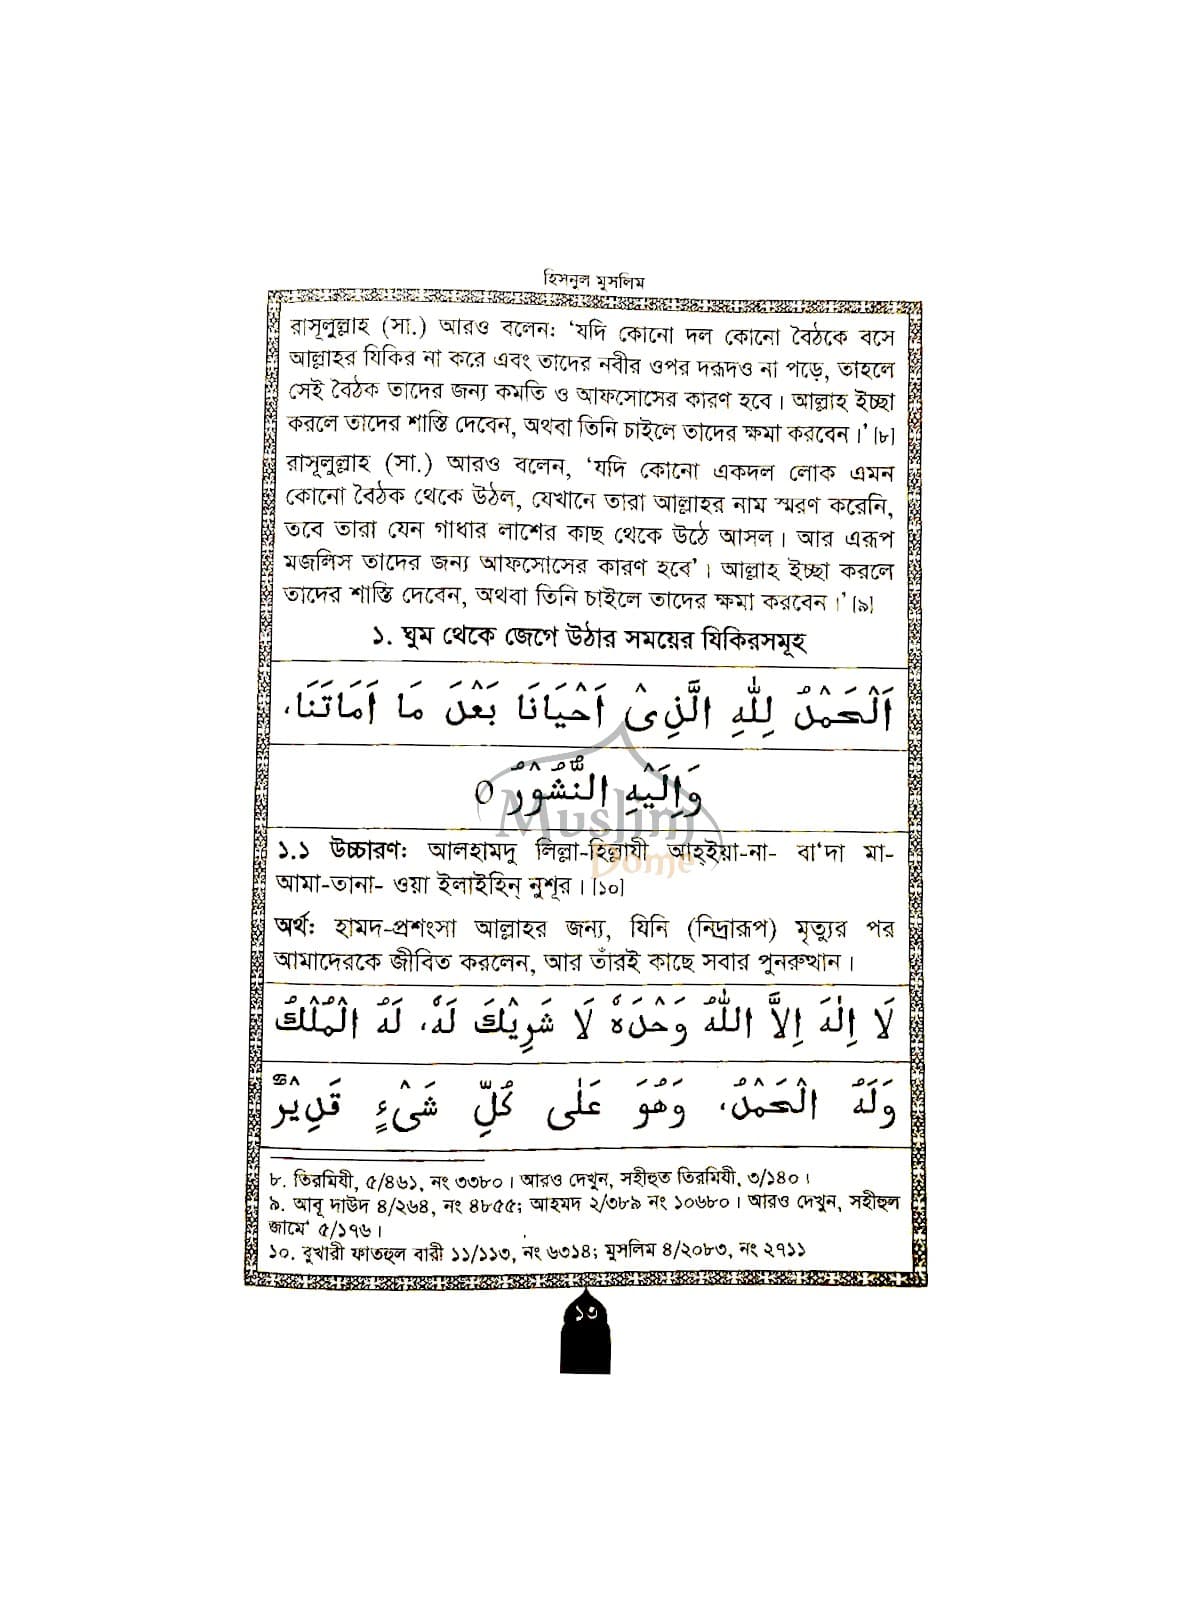 হিসনুল মুসলিম
রাসূলুল্লাহ (সা.) আরও বলেন: ‘যদি কোনো দল কোনো বৈঠকে বসে
আল্লাহর যিকির না করে এবং তাদের নবীর ওপর দরূদও না পড়ে, তাহলে
সেই বৈঠক তাদের জন্য কমতি ও আফসোসের কারণ হবে। আল্লাহ ইচ্ছা
করলে তাদের শাস্তি দেবেন, অথবা তিনি চাইলে তাদের ক্ষমা করবেন।’ [৮]
রাসূলুল্লাহ (সা.) আরও বলেন, ‘যদি কোনো একদল লোক এমন
কোনো বৈঠক থেকে উঠল, যেখানে তারা আল্লাহর নাম স্মরণ করেনি,
তবে তারা যেন গাধার লাশের কাছ থেকে উঠে আসল। আর এরূপ
মজলিস তাদের জন্য আফসোসের কারণ হবে’। আল্লাহ ইচ্ছা করলে
তাদের শাস্তি দেবেন, অথবা তিনি চাইলে তাদের ক্ষমা করবেন।’ [৯]
১. ঘুম থেকে জেগে উঠার সময়ের যিকিরসমূহ
اَلْحَمْدُ لِلّٰهِ الَّذِىْ اَحْيَانَا بَعْدَ مَا اَمَاتَنَا،
وَاِلَيْهِ النُّشُوْرُ ٥
Muslim
Dome
১.১ উচ্চারণ: আলহামদু লিল্লা-হিল্লাযী আহ্ইয়া-না- বা‘দা মা-
আমা-তানা- ওয়া ইলাইহিন্ নুশূর। [১০]
অর্থ: হামদ-প্রশংসা আল্লাহর জন্য, যিনি (নিদ্রারূপ) মৃত্যুর পর
আমাদেরকে জীবিত করলেন, আর তাঁরই কাছে সবার পুনরুত্থান।
لَا اِلٰهَ اِلاَّ اللّٰهُ وَحْدَهٗ لَا شَرِيْكَ لَهٗ، لَهُ الْمُلْكُ
وَلَهُ الْحَمْدُ، وَهُوَ عَلٰى كُلِّ شَىْءٍ قَدِيْرٌ
৮. তিরমিযী, ৫/৪৬১, নং ৩৩৮০। আরও দেখুন, সহীহুত তিরমিযী, ৩/১৪০।
৯. আবূ দাউদ ৪/২৬৪, নং ৪৮৫৫; আহমদ ২/৩৮৯ নং ১০৬৮০। আরও দেখুন, সহীহুল
জামে‘ ৫/১৭৬।
১০. বুখারী ফাতহুল বারী ১১/১১৩, নং ৬৩১৪; মুসলিম ৪/২০৮৩, নং ২৭১১
১৩